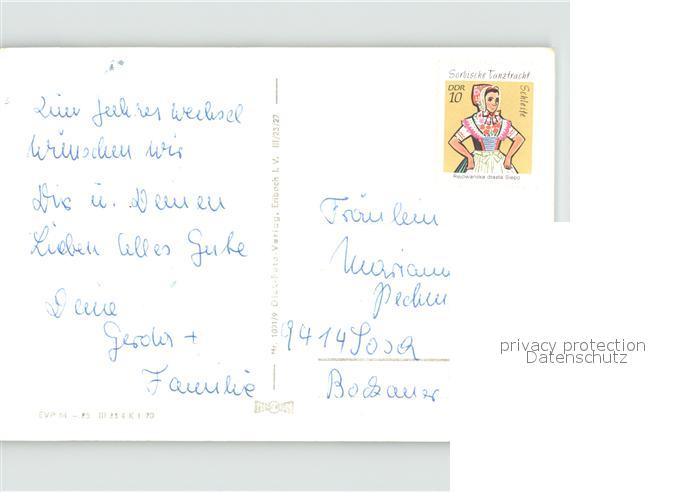 Zum Jahreswechsel
wünschen wir
Dir u. Deinen
Lieben Alles Gute
Deine
Gerda +
Familie
EVP M —.25 III 23 4 K 1 70
III/23/27
Sorbische Tanztracht
DDR
10
Schleife
Rejowańska drasta Slepo
Fräulein
Mariann
Pechm
9414 Sosa
Bockauer
privacy protection
Datenschutz